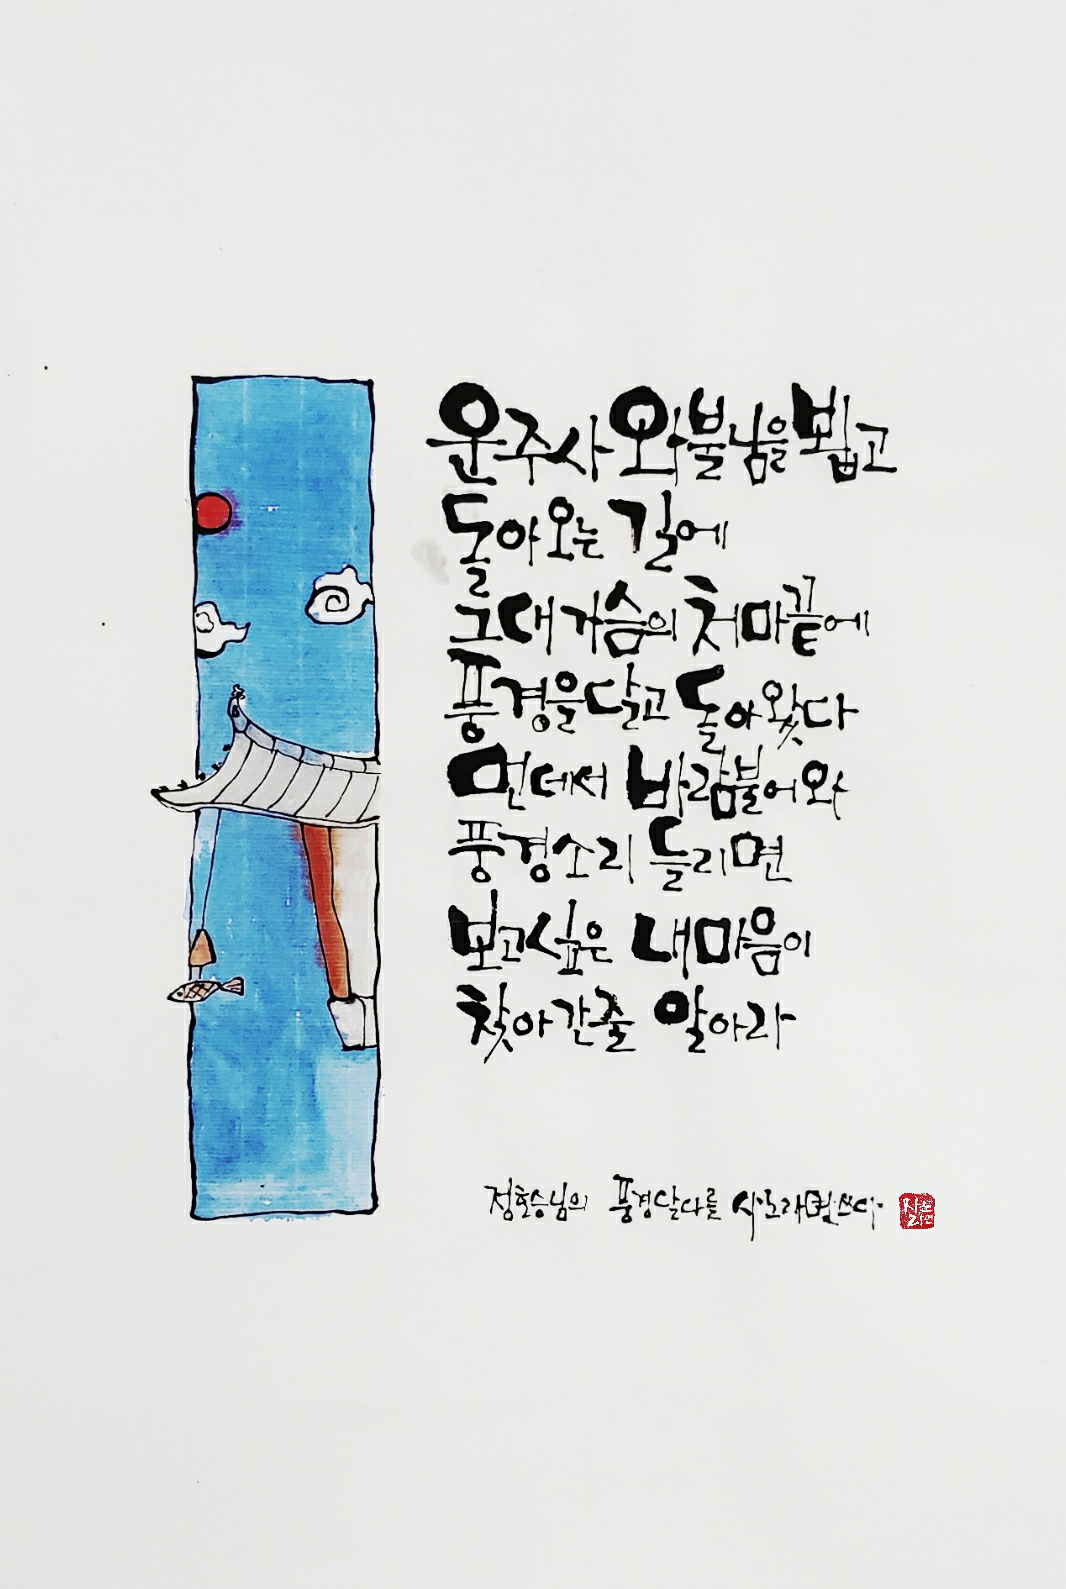 운주사 와불님을 뵙고
돌아오는 길에
그대 가슴의 처마끝에
풍경을 달고 돌아왔다
먼데서 바람불어와
풍경소리 들리면
보고싶은 내마음이
찾아간줄 알아라
정호승님의 풍경달다를 쓰다